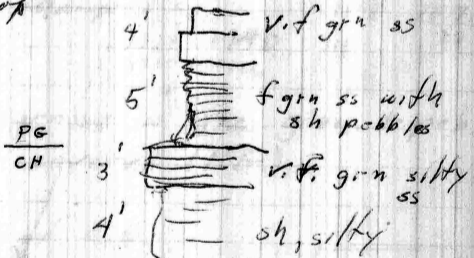 4' v.f grn ss
5' f grn ss with
sh pebbles
PG
CH
3' v.f. grn silty
ss
4' sh, silty